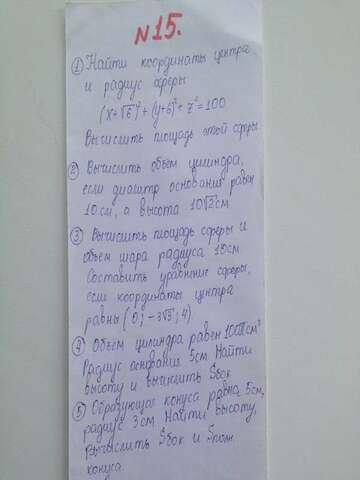 №15.
① Найти координаты центра
и радиус сферы
(x+√6)²+(y+6)²+z²=100
Вычислить площадь этой сферы
② Вычислить объем цилиндра,
если диаметр основания равен
10см, а высота 10√2см.
③ Вычислить площадь сферы и
объем шара радиуса 10см
Составить уравнение сферы,
если координаты центра
равны (0; -3√3; 4)
④ Объем цилиндра равен 100πсм³
Радиус основания 5см Найти
высоту и вычислить Sбок
⑤ Образующая конуса равна 5см,
радиус 3см Найти высоту,
Вычислить Sбок и Sполн
конуса.